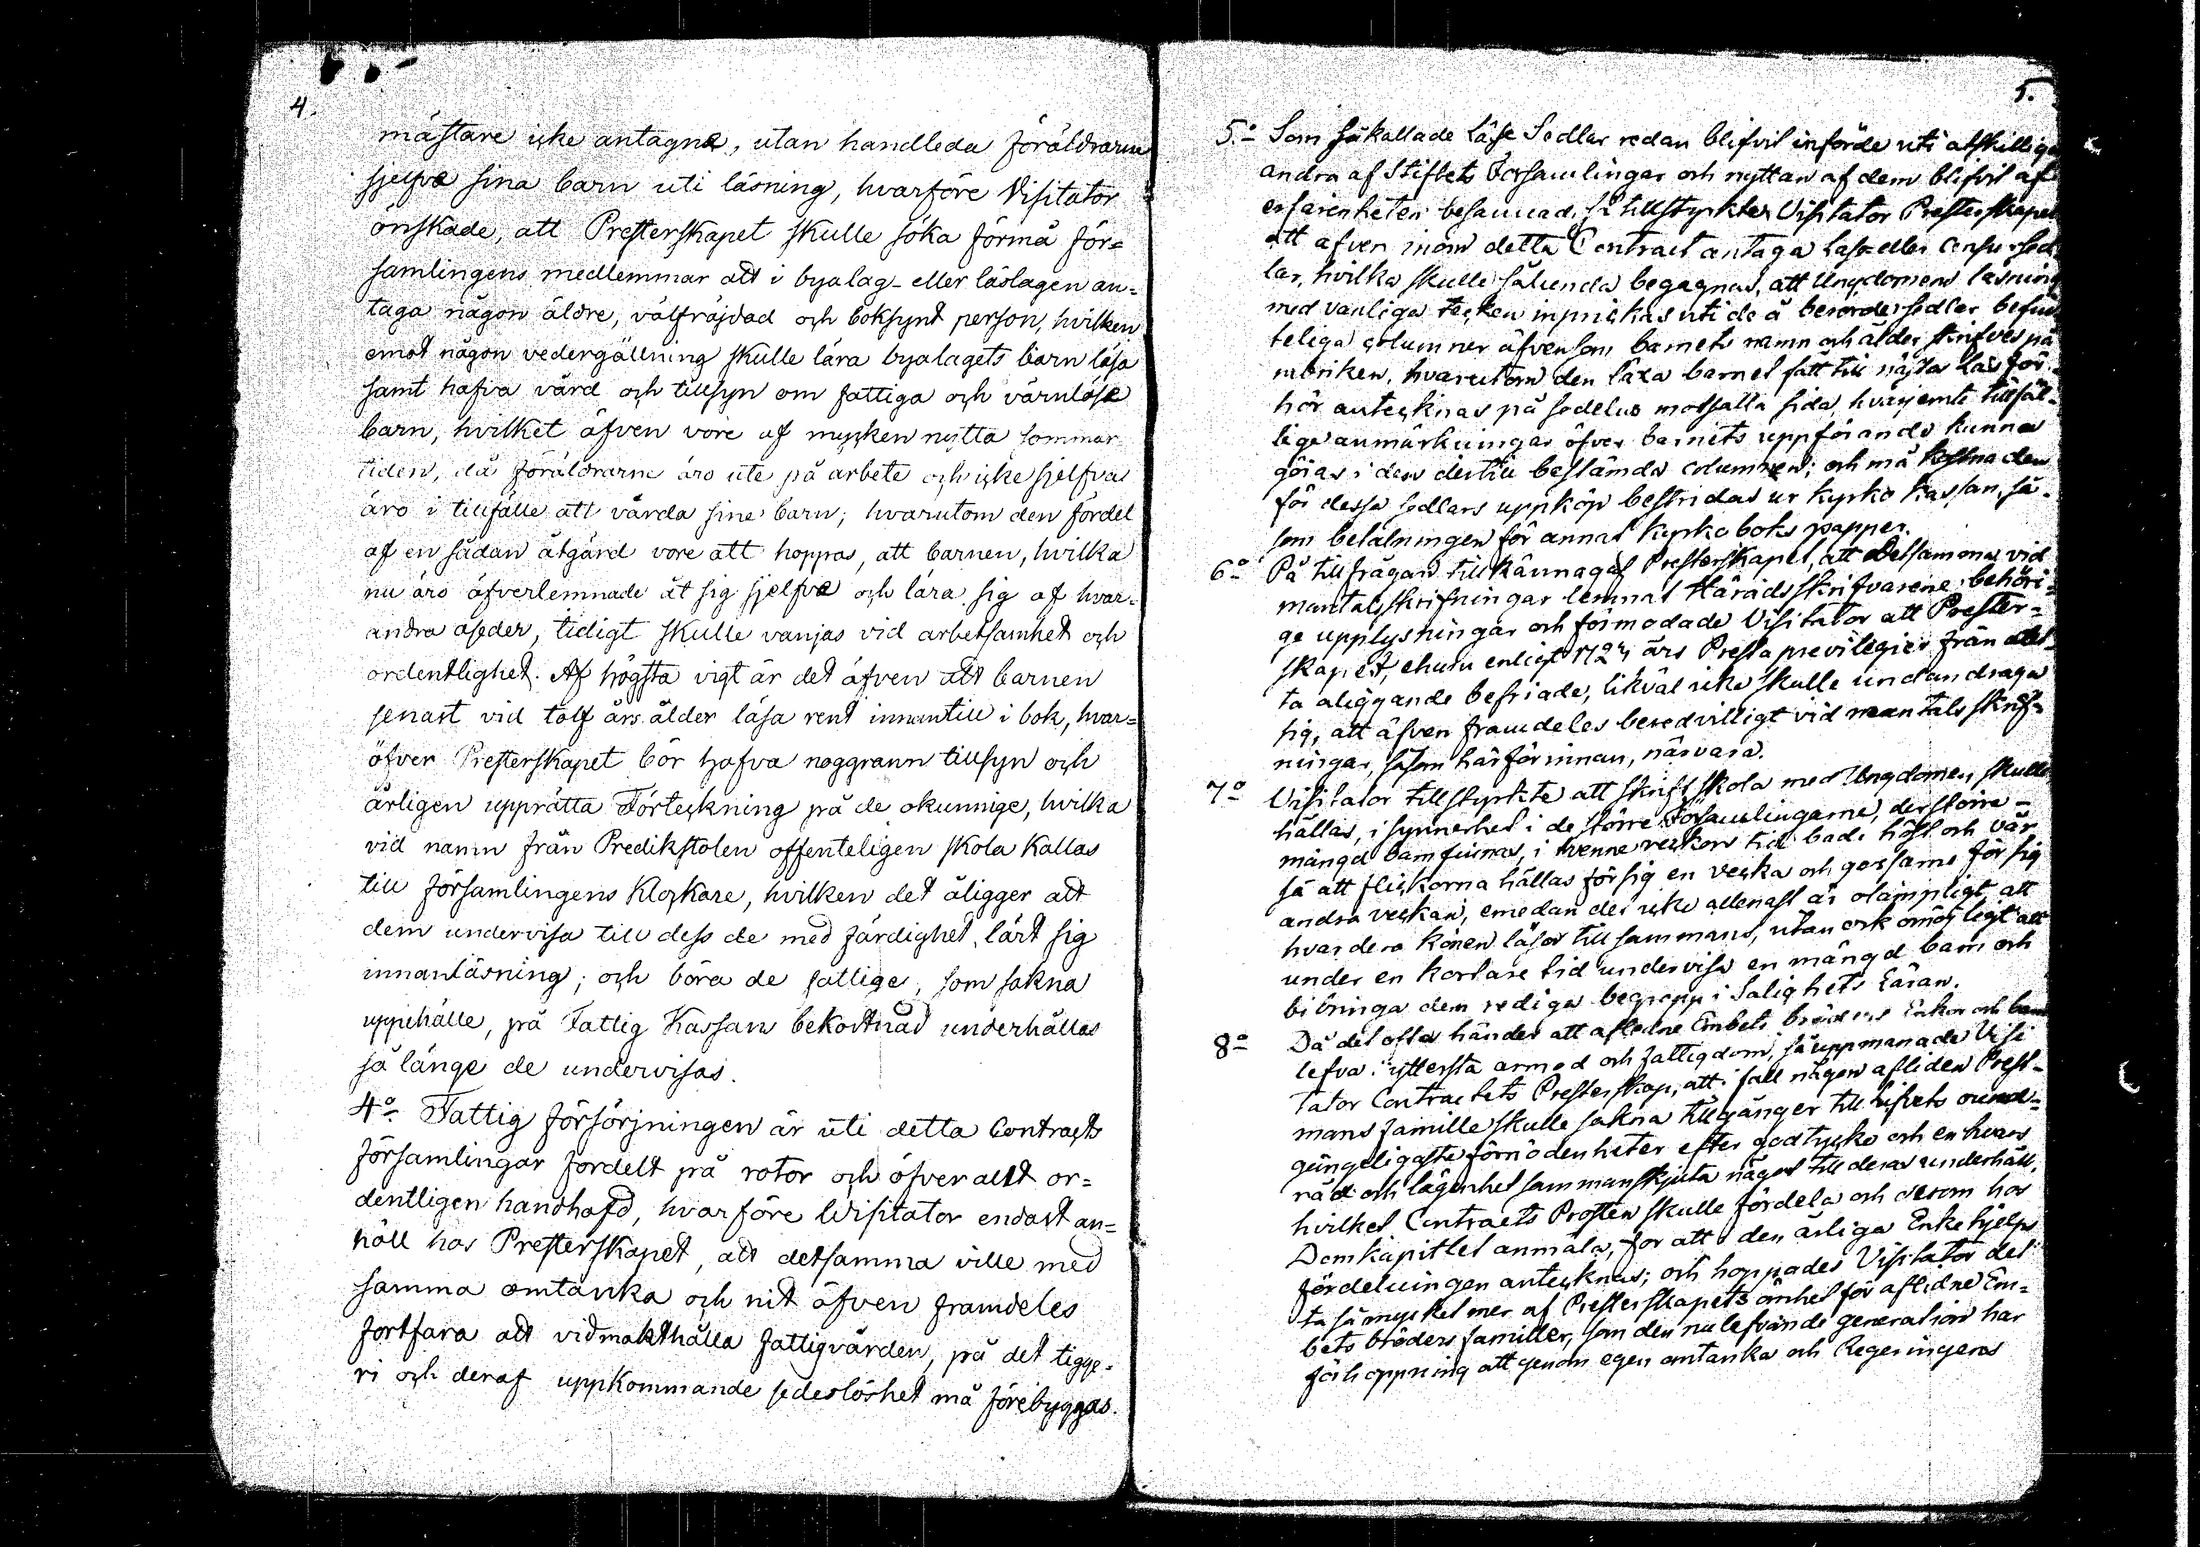 4.
mästare icke antagne, utan handleda föräldrarne
sjelfve sina barn uti läsning, hvarföre Visitator
önskade, att Presterskapet skulle söka förmå för=
samlingens medlemmar att i byalag- eller läslagen an=
taga någon äldre, välfräjdad och boksynt person, hvilken
emot någon vedergällning skulle lära byalagets barn läsa
samt hafva vård och tillsyn om fattiga och värnlöse
barn, hvilket äfven vore af mycken nytta sommar
tiden, då föräldrarne äro ute på arbete och icke sjelfva
äro i tillfälle att vårda sine barn; hvarutom den fördel
af en sådan åtgärd vore att hoppas, att barnen, hvilka
nu äro öfverlemnade åt sig sjelfve och lära sig af hvar=
andra oseder, tidigt skulle vänjas vid arbetsamhet och
ordentlighet. Af högsta vigt är det äfven att barnen
senast vid tolf års ålder läsa rent innantill i bok, hvar=
öfver Presterskapet bör hafva noggrann tillsyn och
årligen upprätta Förteckning på de okunnige, hvilka
vid namn från Predikstolen offenteligen skola kallas
till församlingens Klockare, hvilken det åligger att
dem undervisa till dess de med färdighet lärt sig
innanläsning; och böra de fattige, som sakna
uppehälle, på Fattig Kassan bekostnad underhållas
så länge de undervisas.
4º Fattig försörjningen är uti detta Contracts
församlingar fördelt på rotor och öfverallt or=
dentligen handhafd, hvarföre Visitator endast an=
höll hos Presterskapet, att detsamma ville med
samma omtanka och nit äfven framdeles
fortfara att vidmakthålla fattigvården, på det tigge=
ri och deraf uppkommande sedeslöshet må förebyggas.
5.
5º Som såkallade Läse Sedlar redan blifvit införde uti åtskillige
andra af Stiftets Församlingar och nyttan af dem blifvit af
erfarenheten besannad, så tillstyrkte Visitator Presterskapet
att äfven inom detta Contract antaga Läse eller Censur sed
lar, hvilka skulle sålunda begagnas, att Ungdomens läsning
med vanliga tecken inprickas uti de å berörde sedlar befin
teliga columner äfvensom barnets namn och ålder skrifves på
rubriken, hvarutom den läxa barnet fått till nästa Läsför-
hör antecknas på sedelns motsatta sida, hvarjemte tillfäl-
lige anmärkningar öfver barnets uppförande kunna
göras i den dertill bestämda columnen; och må kostnaden
för dessa sedlars uppköp bestridas ur kyrko kassan, så-
som betalningen för annat kyrkoboks papper.
6º På tillfrågan tillkännagaf Presterskapet, att detsamma vid
mantalsskrifningar lemnat Häradsskrifvarene behöri=
ge upplysningar och förmodade Visitator att Prester=
skapet, ehuru enligt 1723 års Presta previlegier från det-
ta åliggande befriade, likväl icke skulle undandraga
sig, att äfven framdeles beredvilligt vid mantalsskrif=
ningar, såsom härförinnan, närvara.
7º Visitator tillstyrkte att skriftskola med Ungdomen skulle
hållas, i synnerhet i de större Församlingarne, der större
mängd barn finnas, i tvenne veckors tid både höst och vår
så att flickorna hållas för sig en vecka och gossarne för sig
andra veckan, emedan det icke allenast är olämpligt att
hvardera könen läsa tillsammans, utan ock omöjligt att
under en kortare tid undervisa en mängd barn och
bibringa dem rediga begrepp i Salighets Läran.
8º Då det ofta händer att aflidne Embets bröders Enkor och barn
lefva i yttersta armod och fattigdom, så uppmanade Visi
tator Contractets Presterskap, att i fall någon afliden Prest-
mans famille skulle sakna tillgånger till lifvets ound=
gängeligaste förnödenheter efter godtycke och en hvars
råd och lägenhet sammanskjuta något till deras underhåll,
hvilket Contracts Prosten skulle fördela och derom hos
Domkapitlet anmäla, för att i den årliga Enkehjelps
fördelningen antecknas; och hoppades Visitator det
ta så mycket mer af Presterskapets ömhet för aflidne Em=
bets bröders familler, som den nulefvande generation har
förhoppning att genom egen omtanka och Regeringens